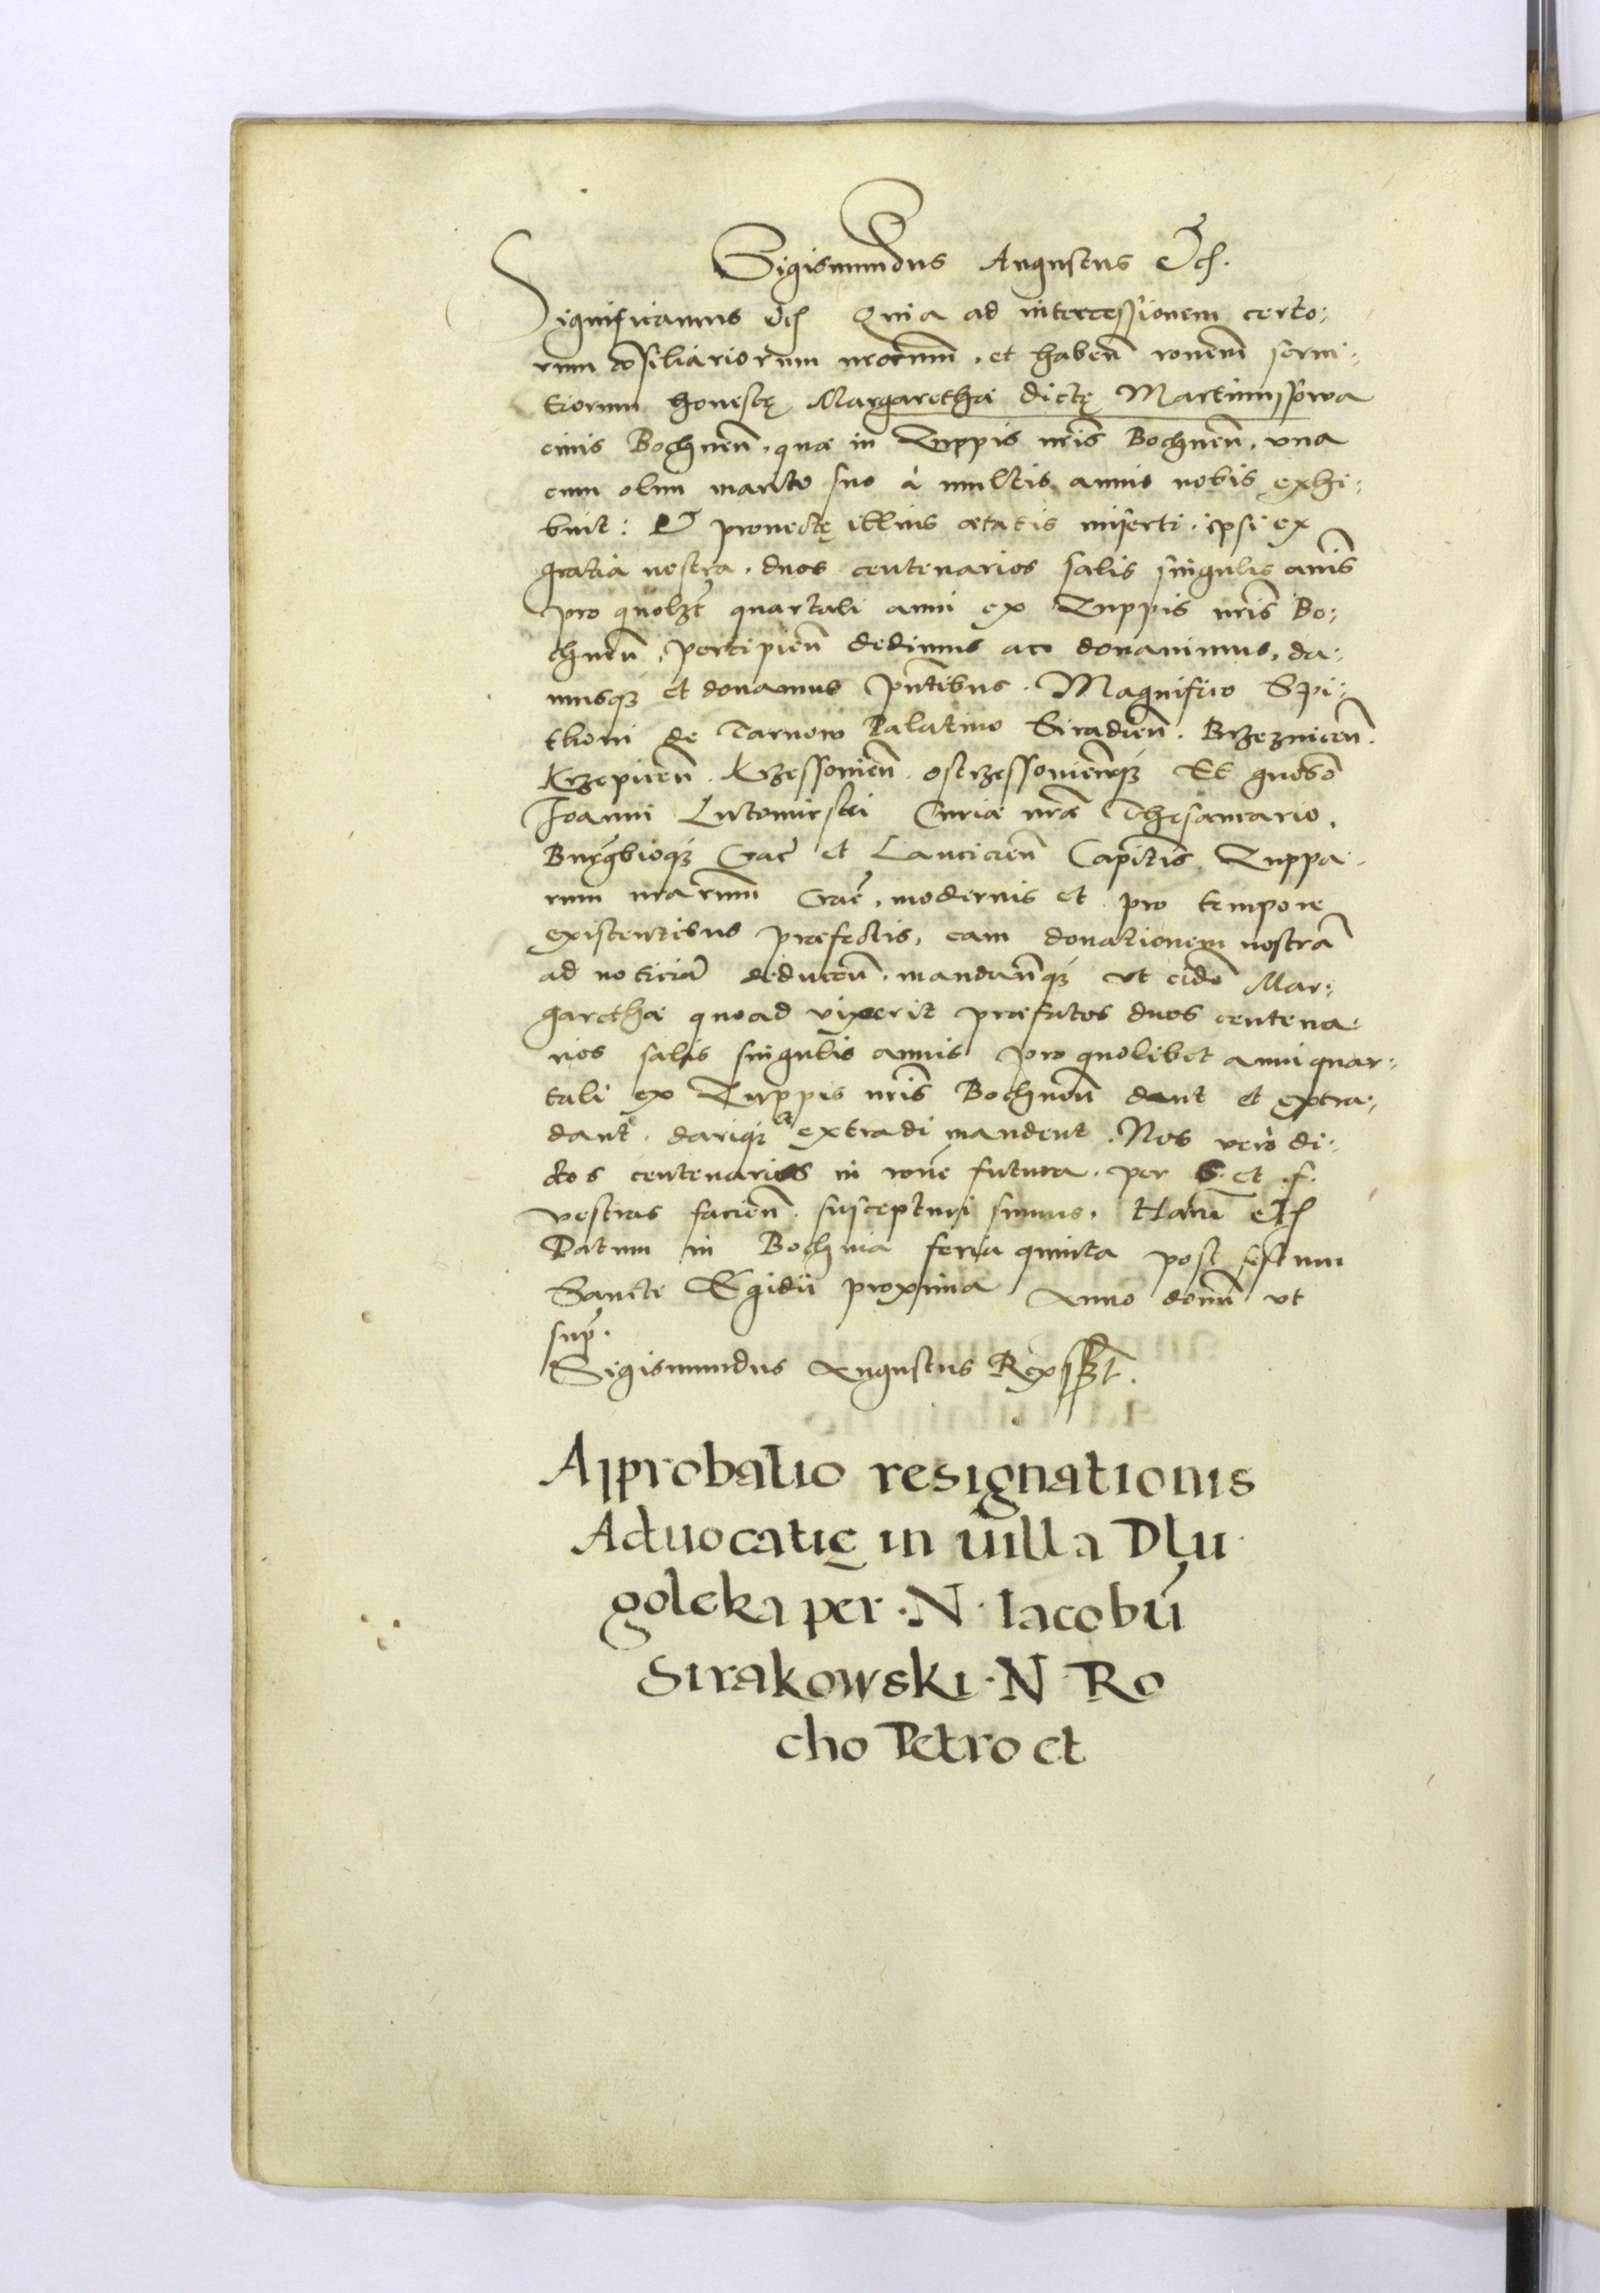 Sigismundus Augustus Etc.
Significamus Etc Quia ad intercessionem certo:
rum cōsiliariorum nrorum̃, et habeñ ronem̃ serui:
tiorum honestę Margarethæ dictę Martinussowa
ciuis Bochneñ, quæ in Zuppis nris̃ Bochneñ, vna
cum olim marito suo à multis annis nobis exhi:
buit: Et prouectę illius ætatis miserti, ipsi ex
gratia nostra, duos centenarios salis singulis anis̃
pro quolzt̃ quartali anni ex Zuppis nris̃ Bo:
chneñ, percipieñ dedimus ac donauimus, da:
musq́ et donamus pñtibus. Magnifico Spi:
thoni de Tarnow Palatino Siradieñ. Brzezniceñ.
Krzepiceñ. Krzessouieñ. ostrzessouieñq́ Et gnoso᷃
Joanni Lutomirski Curiæ nræ̃ Thesaurario,
Burgbioq́ Crac̃ et Lancicieñ Capitis̃, Zuppa:
rum nrarum̃ Crac̃, modernis et pro tempore
existentibus præfectis, eam donationem nostrã
ad noticiã deduceñ, mandañq́ vt eidẽ Mar:
garethæ quoad vixerit præfatos duos centena:
rios salis singulis annis pro quolibet anni quar:
tali ex Zuppis nris̃ Bochneñ dent et extra:
dant, dariq́ et extradi mandent. Nos verò di:
ctos centenarios in rone᷃ futura, per S. et f.
vestras facieñ, suscepturi sumus. Harũ Etc
Datum in Bochnia feria quinta post festum
Sancti Egidii proxima Anno domĩ vt
sup̃.
Sigismundus Augustus Rex sspt̃.
Approbatio resignationis
Aduocatię in uilla Dlu
goleka per .N. Iacobũ
Sirakowski .N. Ro
cho Petro et